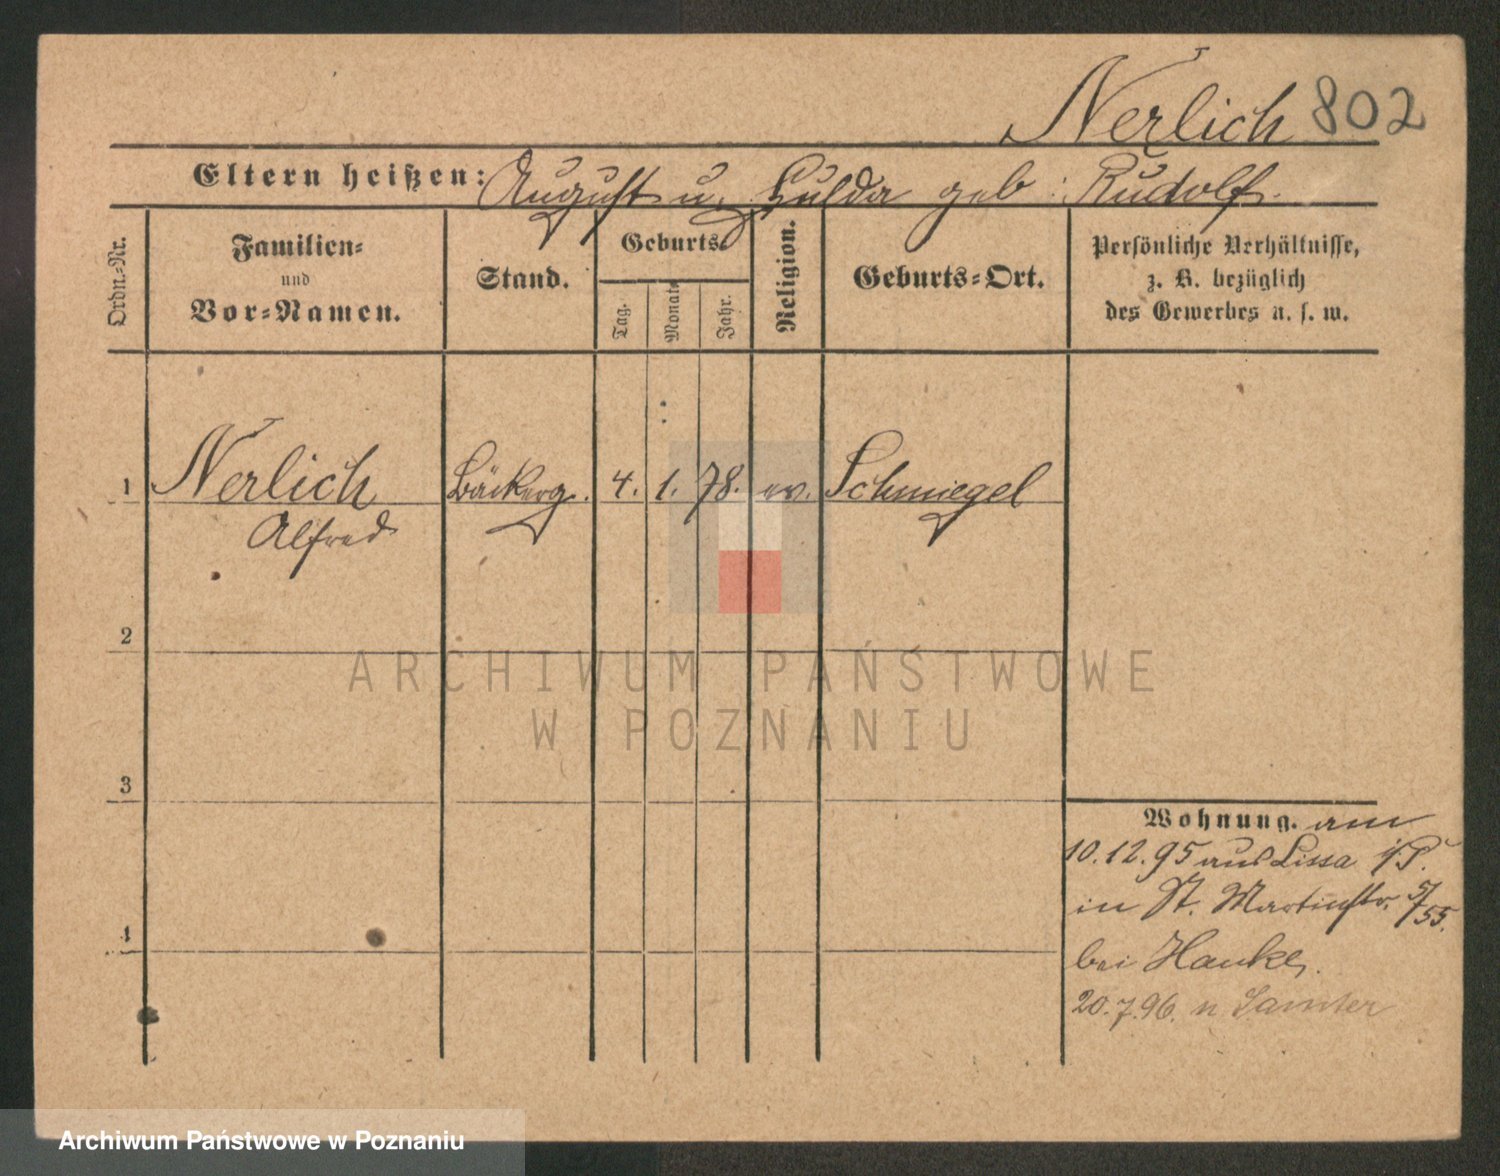 Nerlich 802
Eltern heißen: August u. Hulda geb: Rudolf.
Ordn.-Nr.
Familien-
und
Vor-Namen.
Stand.
Geburts-
Tag.
Monat.
Jahr.
Religion.
Geburts-Ort.
Persönliche Verhältnisse,
z. B. bezüglich
des Gewerbes u. s. w.
1 Nerlich Bäckerg. 4. 1. 78. ev. Schmiegel
Alfred
2
3
4
Wohnung. am
10.12.95 aus Lissa i/P.
in St. Martinstr. 5/55.
bei Hanke,
20.7.96. n Samter
ARCHIWUM PAŃSTWOWE
W POZNANIU
Archiwum Państwowe w Poznaniu